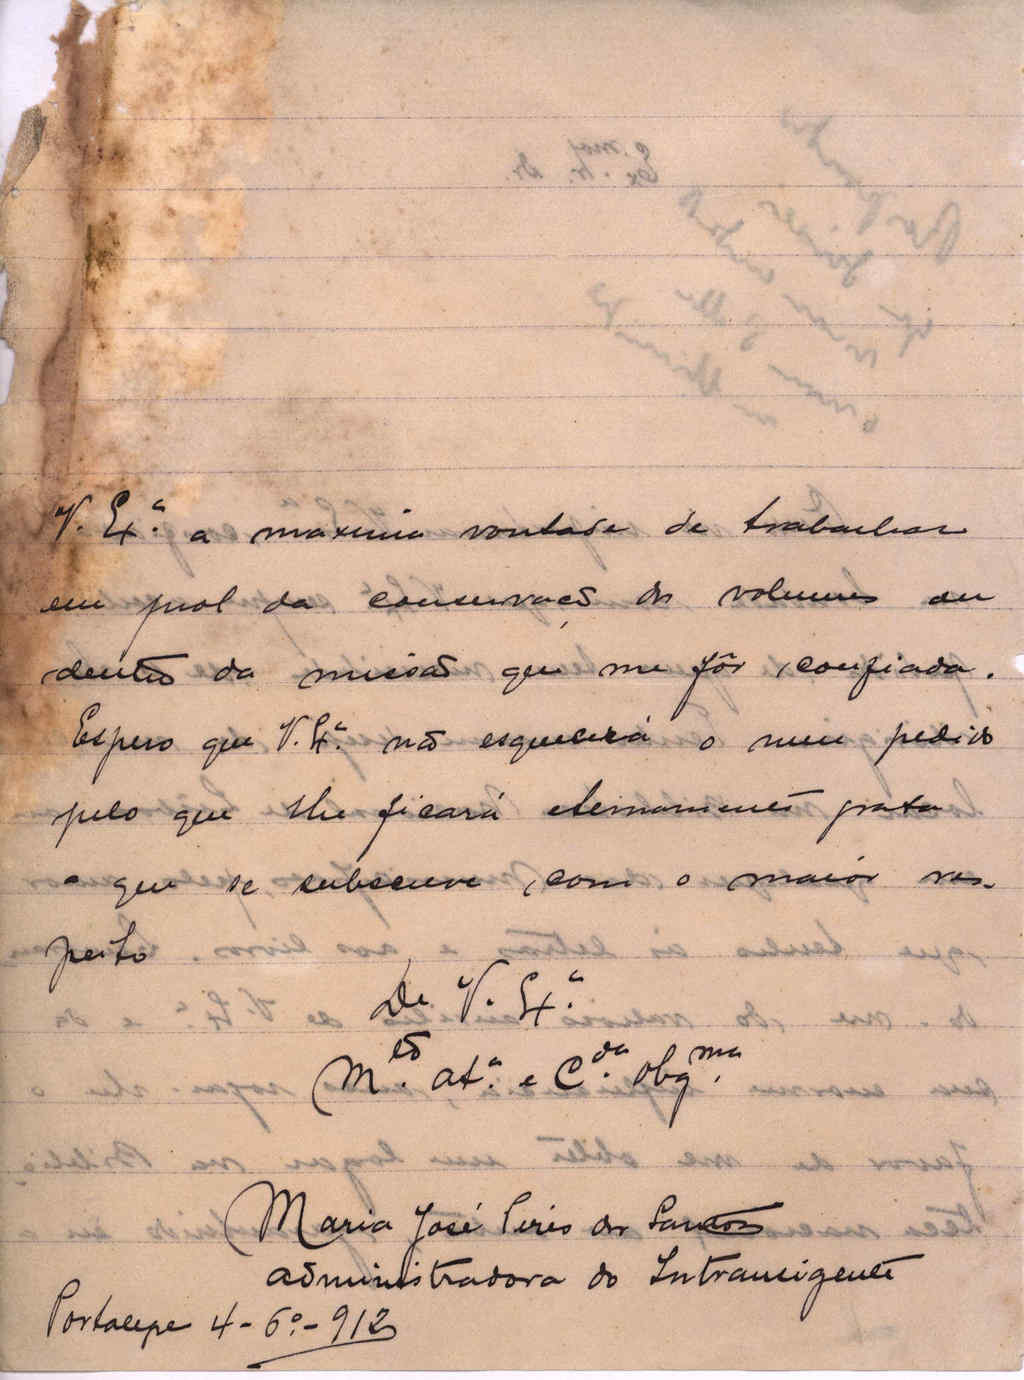 V. Ex.ª a maxima vontade de trabalhar
em prol da conservacão dos volumes ou
dentro da missão que me fôr confiada.
Espero que V. Ex.ª não esquecerá o meu pedido
pelo que lhe ficará eternamente grata
a que se subscreve, com o maior res-
peito
De V. Ex.ª
M.to at.ª e C.da Obg.ma
Maria José Pires dos Santos
administradora do Intransigente
Portalegre 4-6º-912